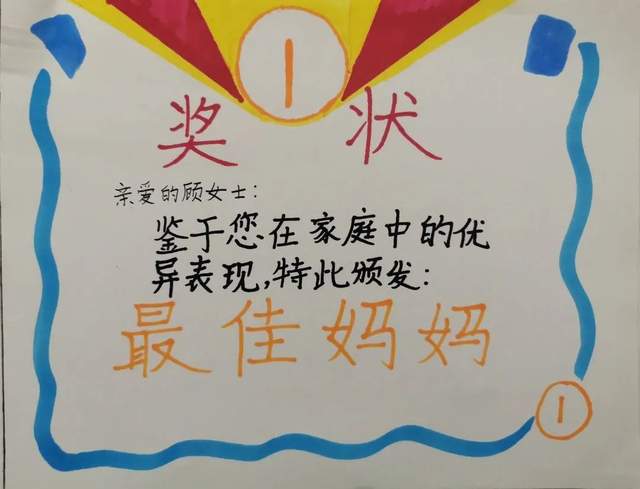 1
奖 状
亲爱的顾女士:
鉴于您在家庭中的优
异表现,特此颁发:
最佳妈妈
1